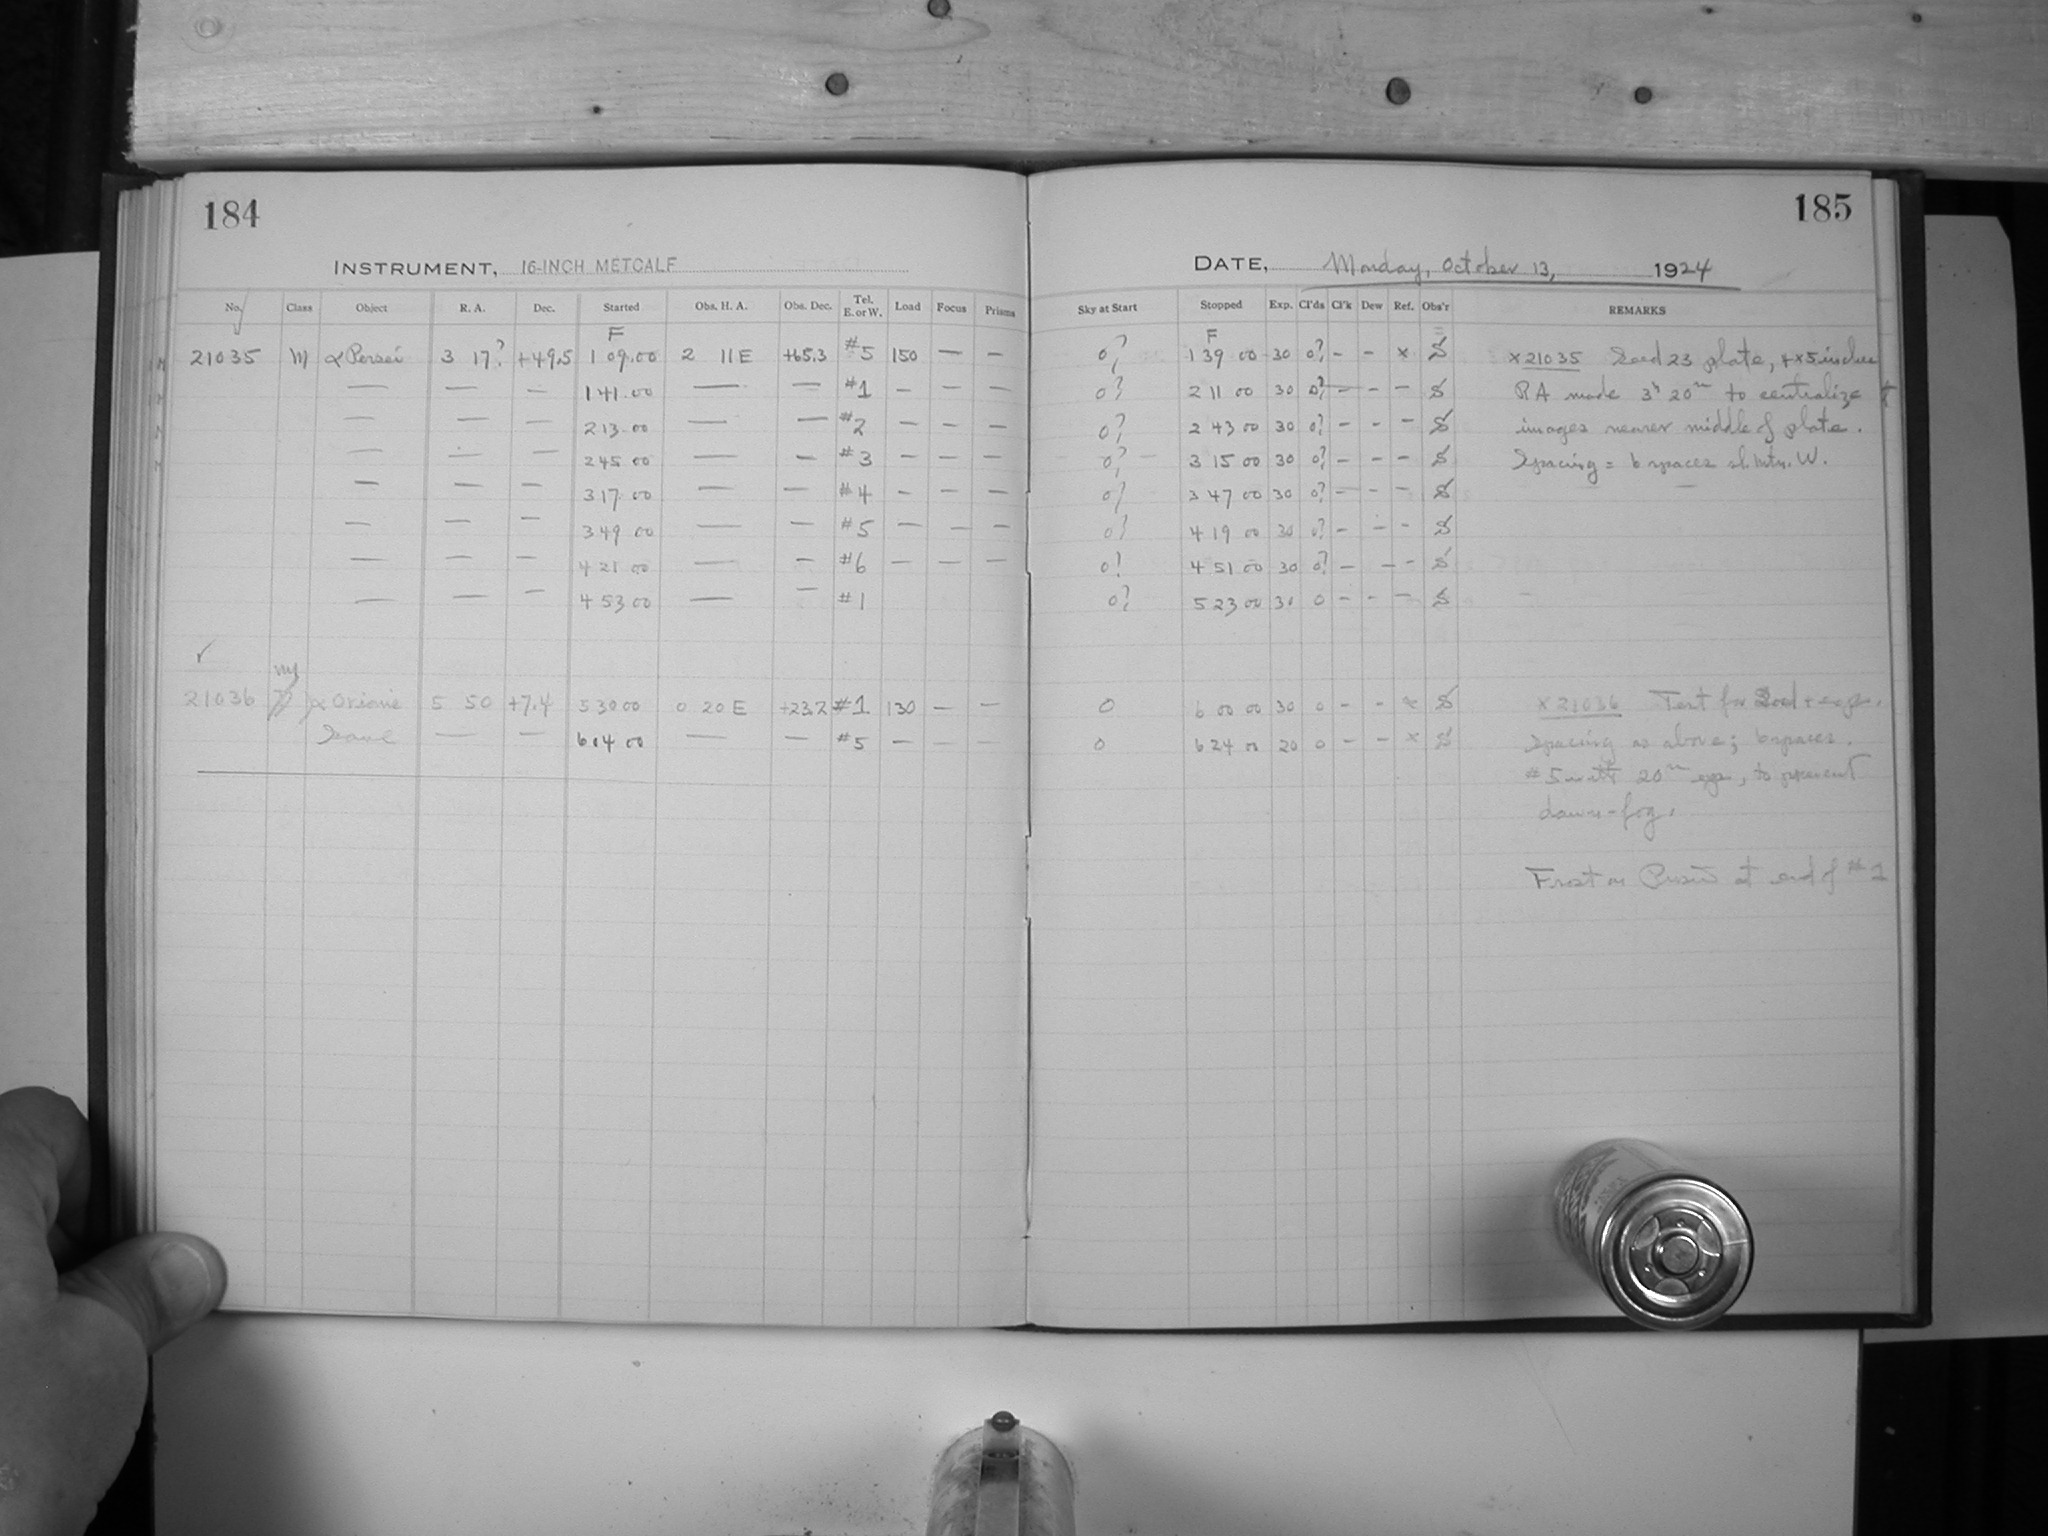 184
INSTRUMENT, 16-INCH METCALF
No. Class Object R. A. Dec. Started Obs. H. A. Obs. Dec. Tel. E. or W. Load Focus Prisms
F
21035 M α Persei 3 17? +49.5 1 09.00 2 11 E +65.3 #5 150 — —
— — — 1 41.00 — — #1 — — —
— — — 2 13 00 — — #2 — — —
— — — 2 45 00 — — #3 — — —
— — — 3 17 00 — — #4 — — —
— — — 3 49 00 — — #5 — — —
— — — 4 21 00 — — #6 — — —
— — — 4 53 00 — — #1
✓
21036 α Orionis 5 50 +7.4 5 30 00 0 20 E +23.2 #1 130 — —
Same — — 6 04 00 — — #5 — — —
185
DATE, Monday, October 13, 1924
Sky at Start Stopped Exp. Cl'ds Cl'k Dew Ref. Obs'r REMARKS
F
0? 1 39 00 30 0? – – x S x 21035 Seed 23 plate, 4x5 inches
0? 2 11 00 30 0? – – – S RA made 3h 20m to centralize
0? 2 43 00 30 0? – – – S images nearer middle of plate.
0? 3 15 00 30 0? – – – S Spacing = 6 spaces W.
0? 3 47 00 30 0? – – – S
0? 4 19 00 30 0? – – – S
0? 4 51 00 30 0? – – – S
0? 5 23 00 30 0 – – – S
0 6 00 00 30 0 – – x S x 21036 Test for
0 6 24 00 20 0 – – x S Spacing as above; 6 spaces.
#5 with 20m exp, to prevent
dawn-fog.
Frost on Prism at end of #2